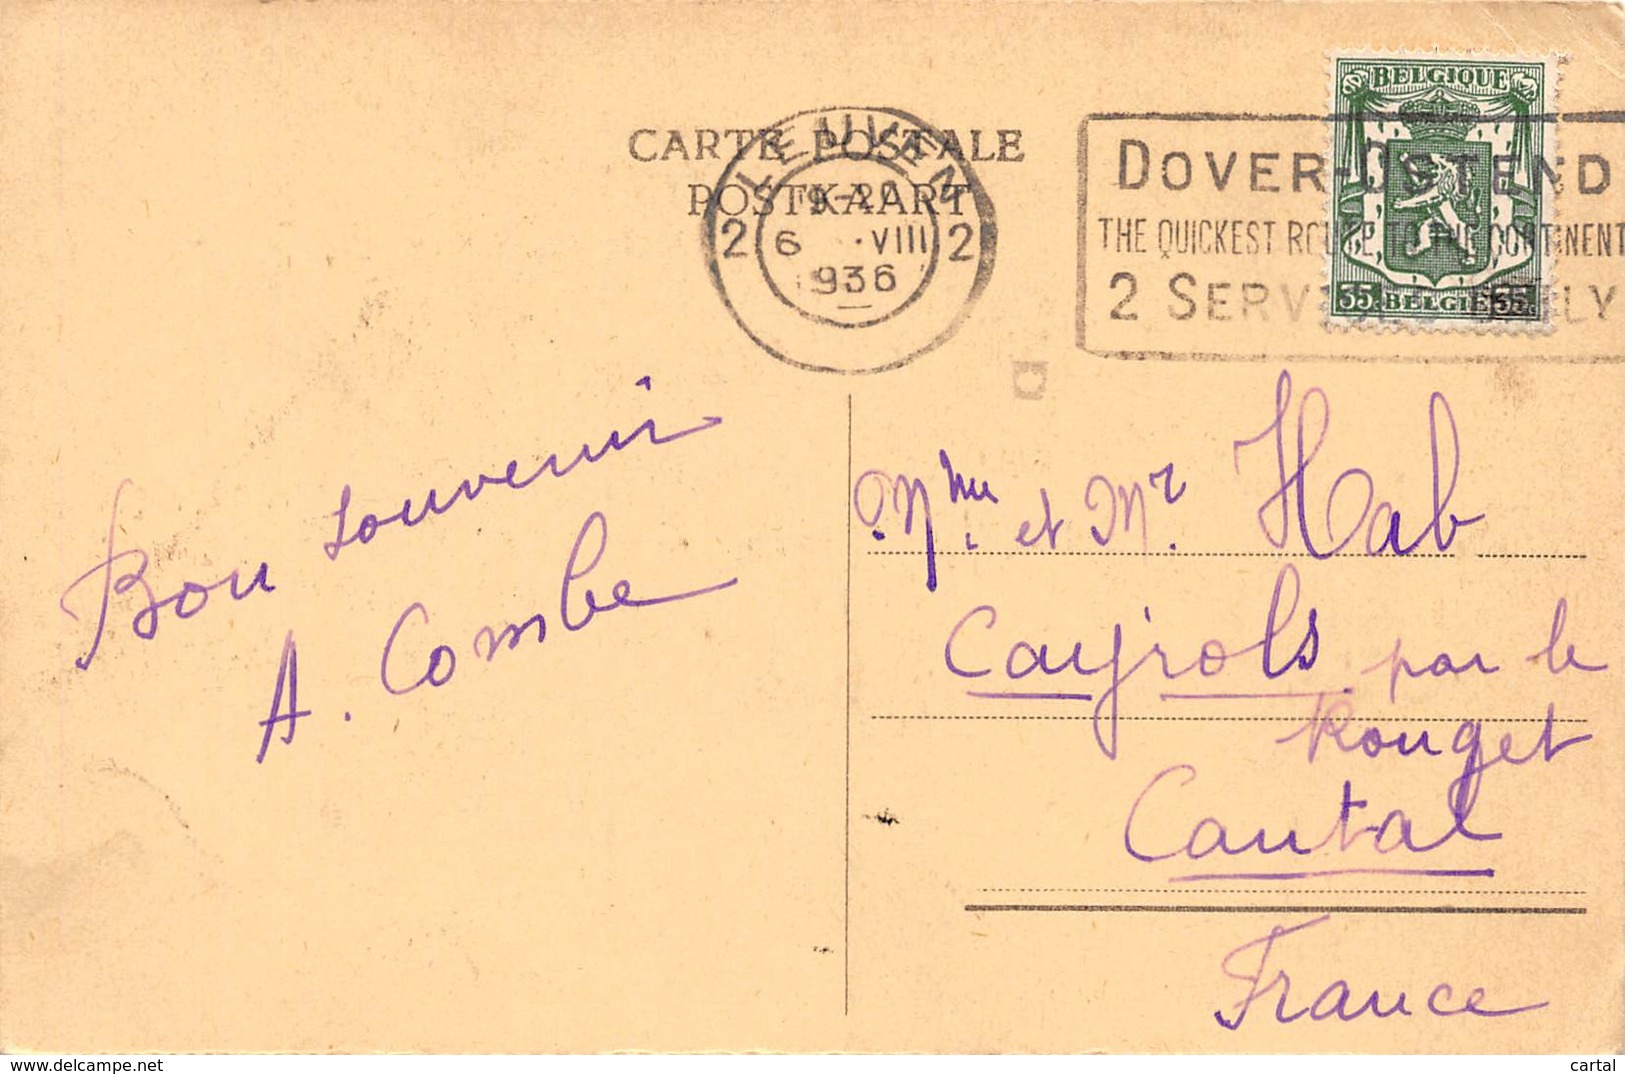 CARTE POSTALE
POSTKAART
LEUVEN
19-20
6 VIII
1936
2 2
DOVER-OSTEND
THE QUICKEST ROUTE TO THE CONTINENT
2 SERV DAILY
BELGIQUE
35c BELGIE 35c
Bon souvenir
A. Combe
Mme et Mr Hab
Cayrols par le
Rouget
Cantal
France
www.delcampe.net
cartal